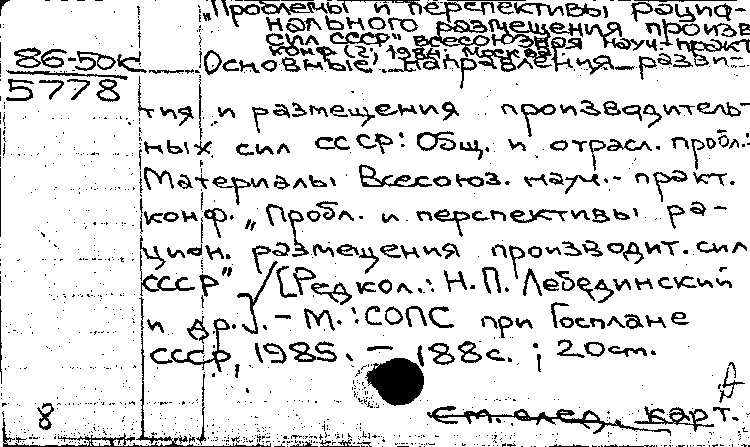 „Проблемы и перспективы рацио-
нального размещения произв
сил СССР" всесоюзная науч.-практ
конф. (2; 1984; Москва)
86-50к
5778
Основные направления разви-
тия и размещения производитель-
ных сил СССР: Общ. и отрасл. пробл.:
Материалы Всесоюз. науч.- практ.
конф. „Пробл. и перспективы ра-
цион. размещения производит. сил
СССР" / [Редкол.: Н.П. Лебединский
и др.]. - М.: СОПС при Госплане
СССР, 1985. - 188 с. ; 20 см.
См. след. карт.
8